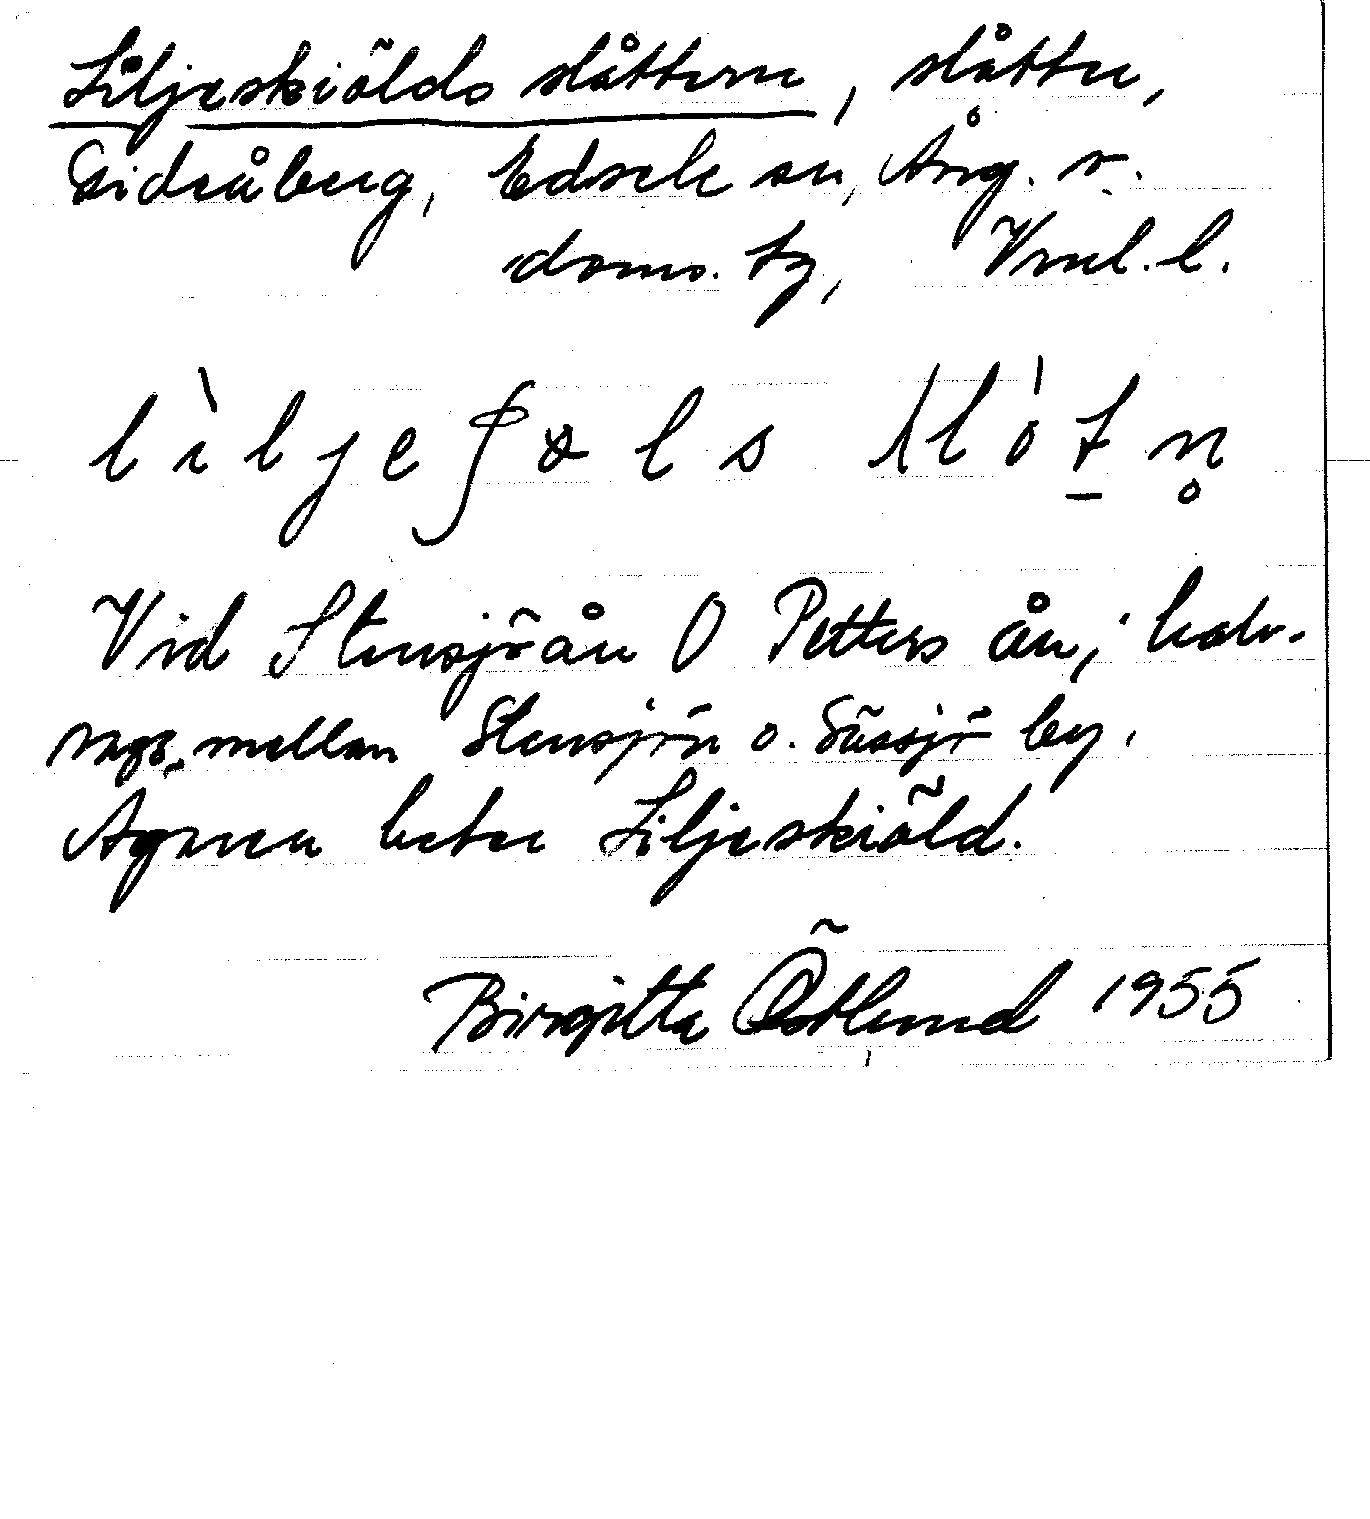 Liljeskiölds slåttern, slåtter,
Eidsåberg, Edsele sn, Ång. v.
doms. tg, Vnl. l.
lìljeʃøls slót n̥
Vid Stensjöån O Petters ån, halv-
vägs mellan Stensjön o. Sässjö by.
Ägaren heter Liljeskiöld.
Birgitta Östlund 1955